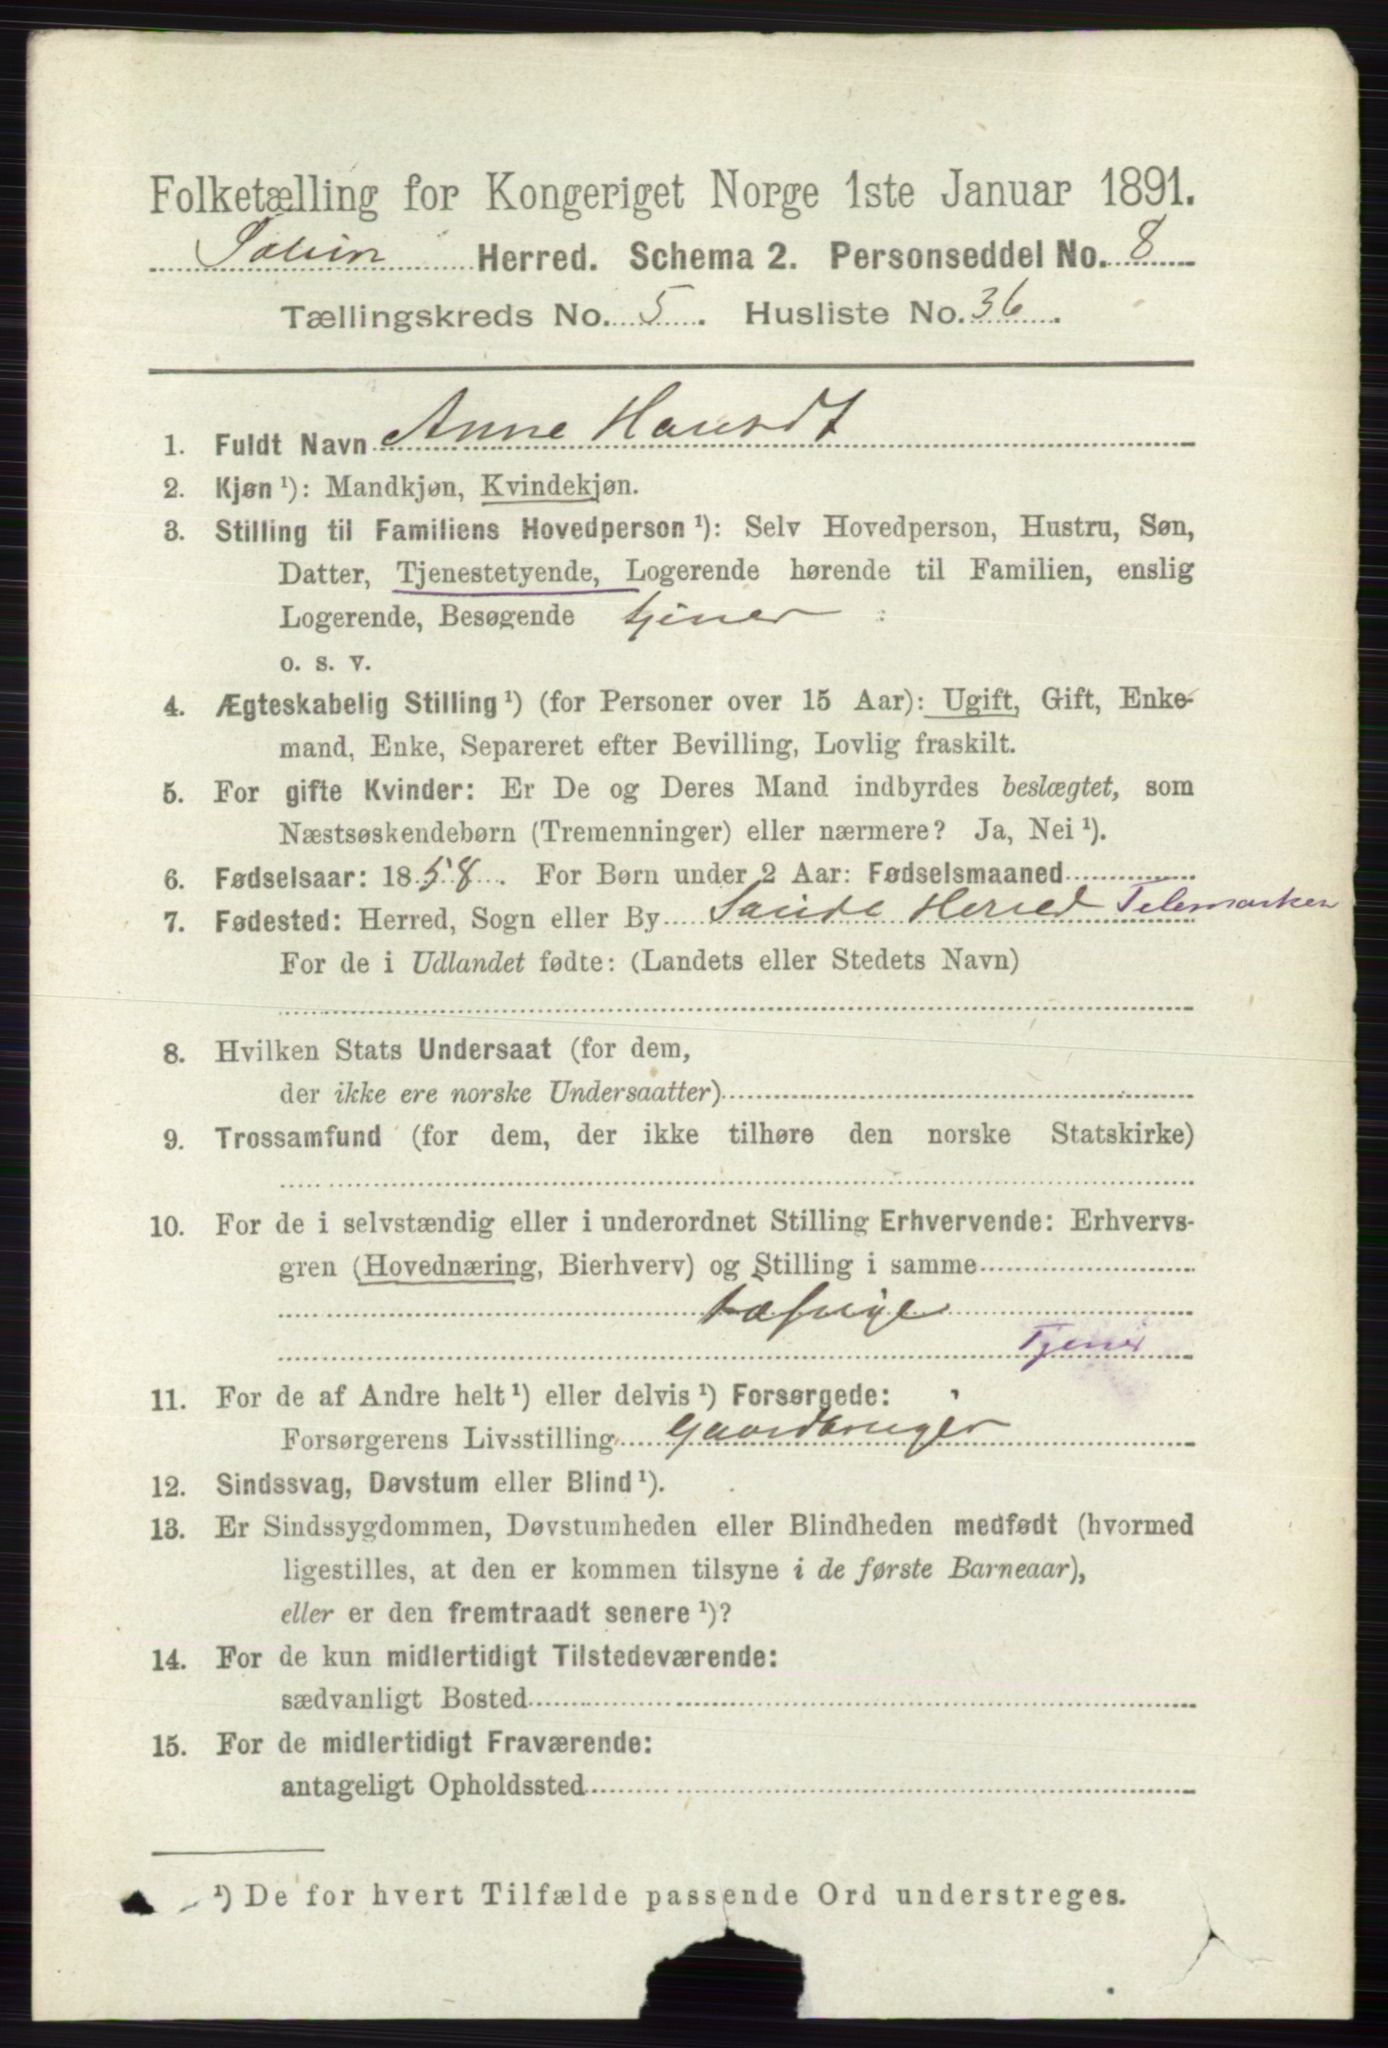 Folketælling for Kongeriget Norge 1ste Januar 1891.
Solum Herred. Schema 2. Personseddel No. 8
Tællingskreds No. 5. Husliste No. 36.
1. Fuldt Navn Anne
2. Kjøn ¹): Mandkjøn, Kvindekjøn.
3. Stilling til Familiens Hovedperson ¹): Selv Hovedperson, Hustru, Søn,
Datter, Tjenestetyende, Logerende hørende til Familien, enslig
Logerende, Besøgende tjener
o. s. v.
4. Ægteskabelig Stilling ¹) (for Personer over 15 Aar): Ugift, Gift, Enke-
mand, Enke, Separeret efter Bevilling, Lovlig fraskilt.
5. For gifte Kvinder: Er De og Deres Mand indbyrdes beslægtet, som
Næstsøskendebørn (Tremenninger) eller nærmere? Ja, Nei ¹).
6. Fødselsaar: 1858. For Børn under 2 Aar: Fødselsmaaned
7. Fødested: Herred, Sogn eller By Saude Herred Telemarken
For de i Udlandet fødte: (Landets eller Stedets Navn)
8. Hvilken Stats Undersaat (for dem,
der ikke ere norske Undersaatter)
9. Trossamfund (for dem, der ikke tilhøre den norske Statskirke)
10. For de i selvstændig eller i underordnet Stilling Erhvervende: Erhvervs-
gren (Hovednæring, Bierhverv) og Stilling i samme
Tjener
11. For de af Andre helt ¹) eller delvis ¹) Forsørgede:
Forsørgerens Livsstilling Gaardbruger
12. Sindssvag, Døvstum eller Blind ¹).
13. Er Sindssygdommen, Døvstumheden eller Blindheden medfødt (hvormed
ligestilles, at den er kommen tilsyne i de første Barneaar),
eller er den fremtraadt senere ¹)?
14. For de kun midlertidigt Tilstedeværende:
sædvanligt Bosted
15. For de midlertidigt Fraværende:
antageligt Opholdssted
¹) De for hvert Tilfælde passende Ord understreges.